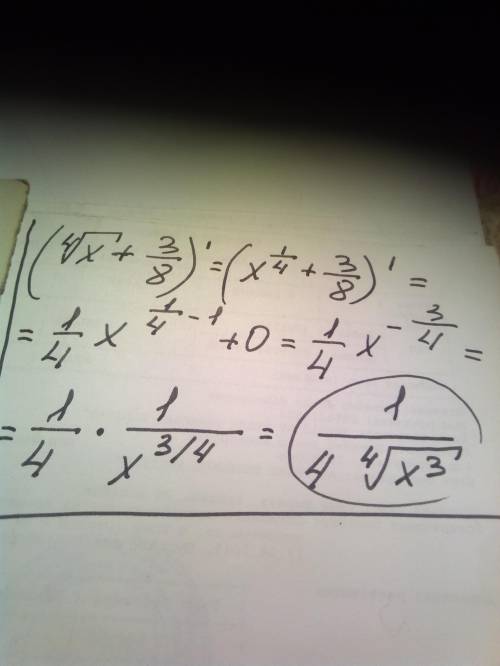 (⁴√x + 3/8)' = (x^(1/4) + 3/8)' =
= 1/4 x^(1/4 - 1) + 0 = 1/4 x^(-3/4) =
= 1/4 · 1/x^(3/4) = 1/(4 ⁴√x³)